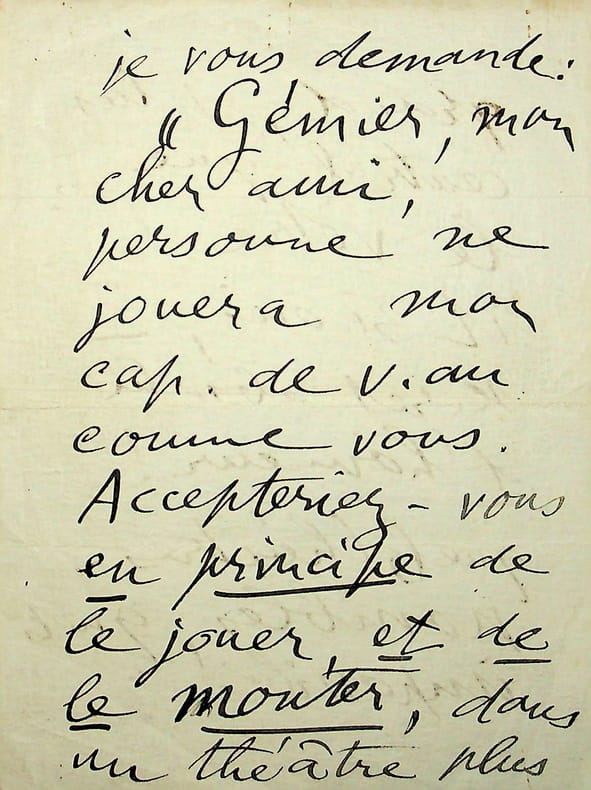 je vous demande:
" Gémier, mon
cher ami,
personne ne
jouera mon
cap. de v.au
comme vous.
Accepteriez-vous
en principe de
le jouer, et de
le monter, dans
un théâtre plus